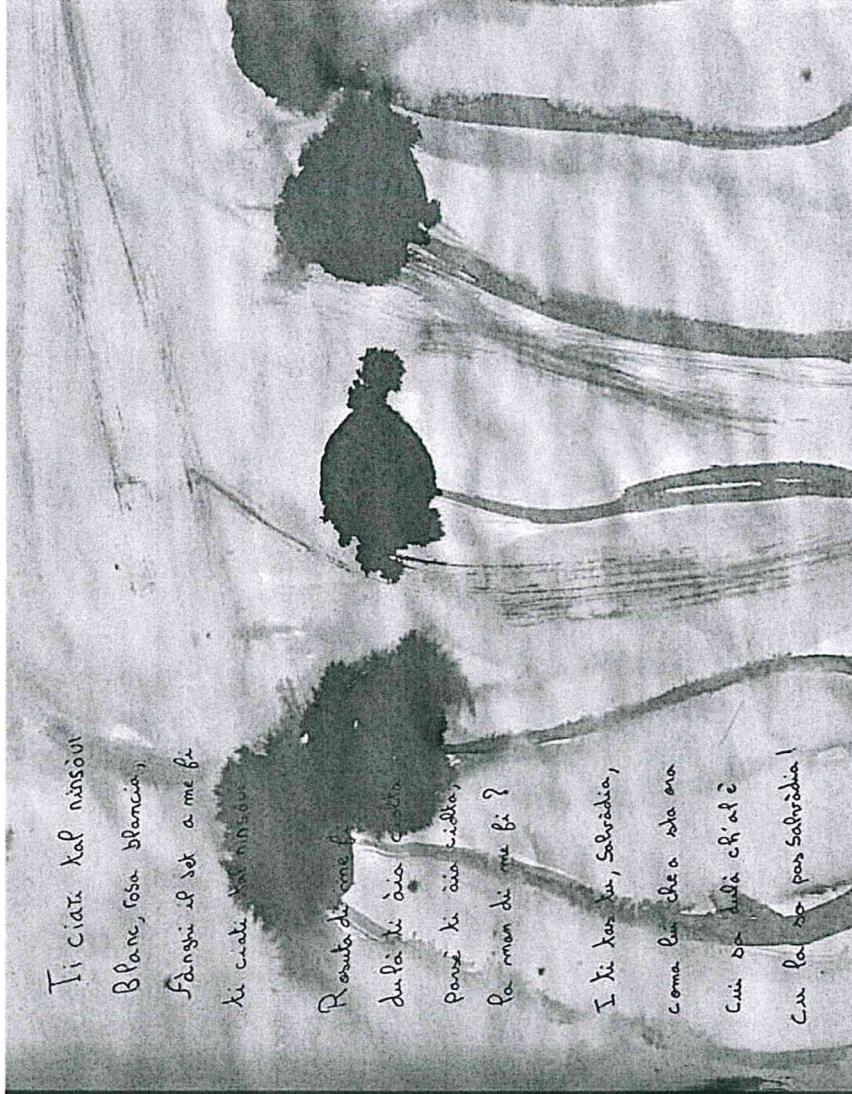 Ti ciati tal ninsòul
blanc, rosa blancia,
fànzri il jet a me fi
ti ciati tal ninsòul
Rosuta di me fi
dulà ti àia ciolta
parsè ti àia ciolta,
la man di me fi?
I ti tas tu, Salvàdia,
coma lui che a sta ora
cui sa dulà ch'al è
cu la so pas Salvàdia!